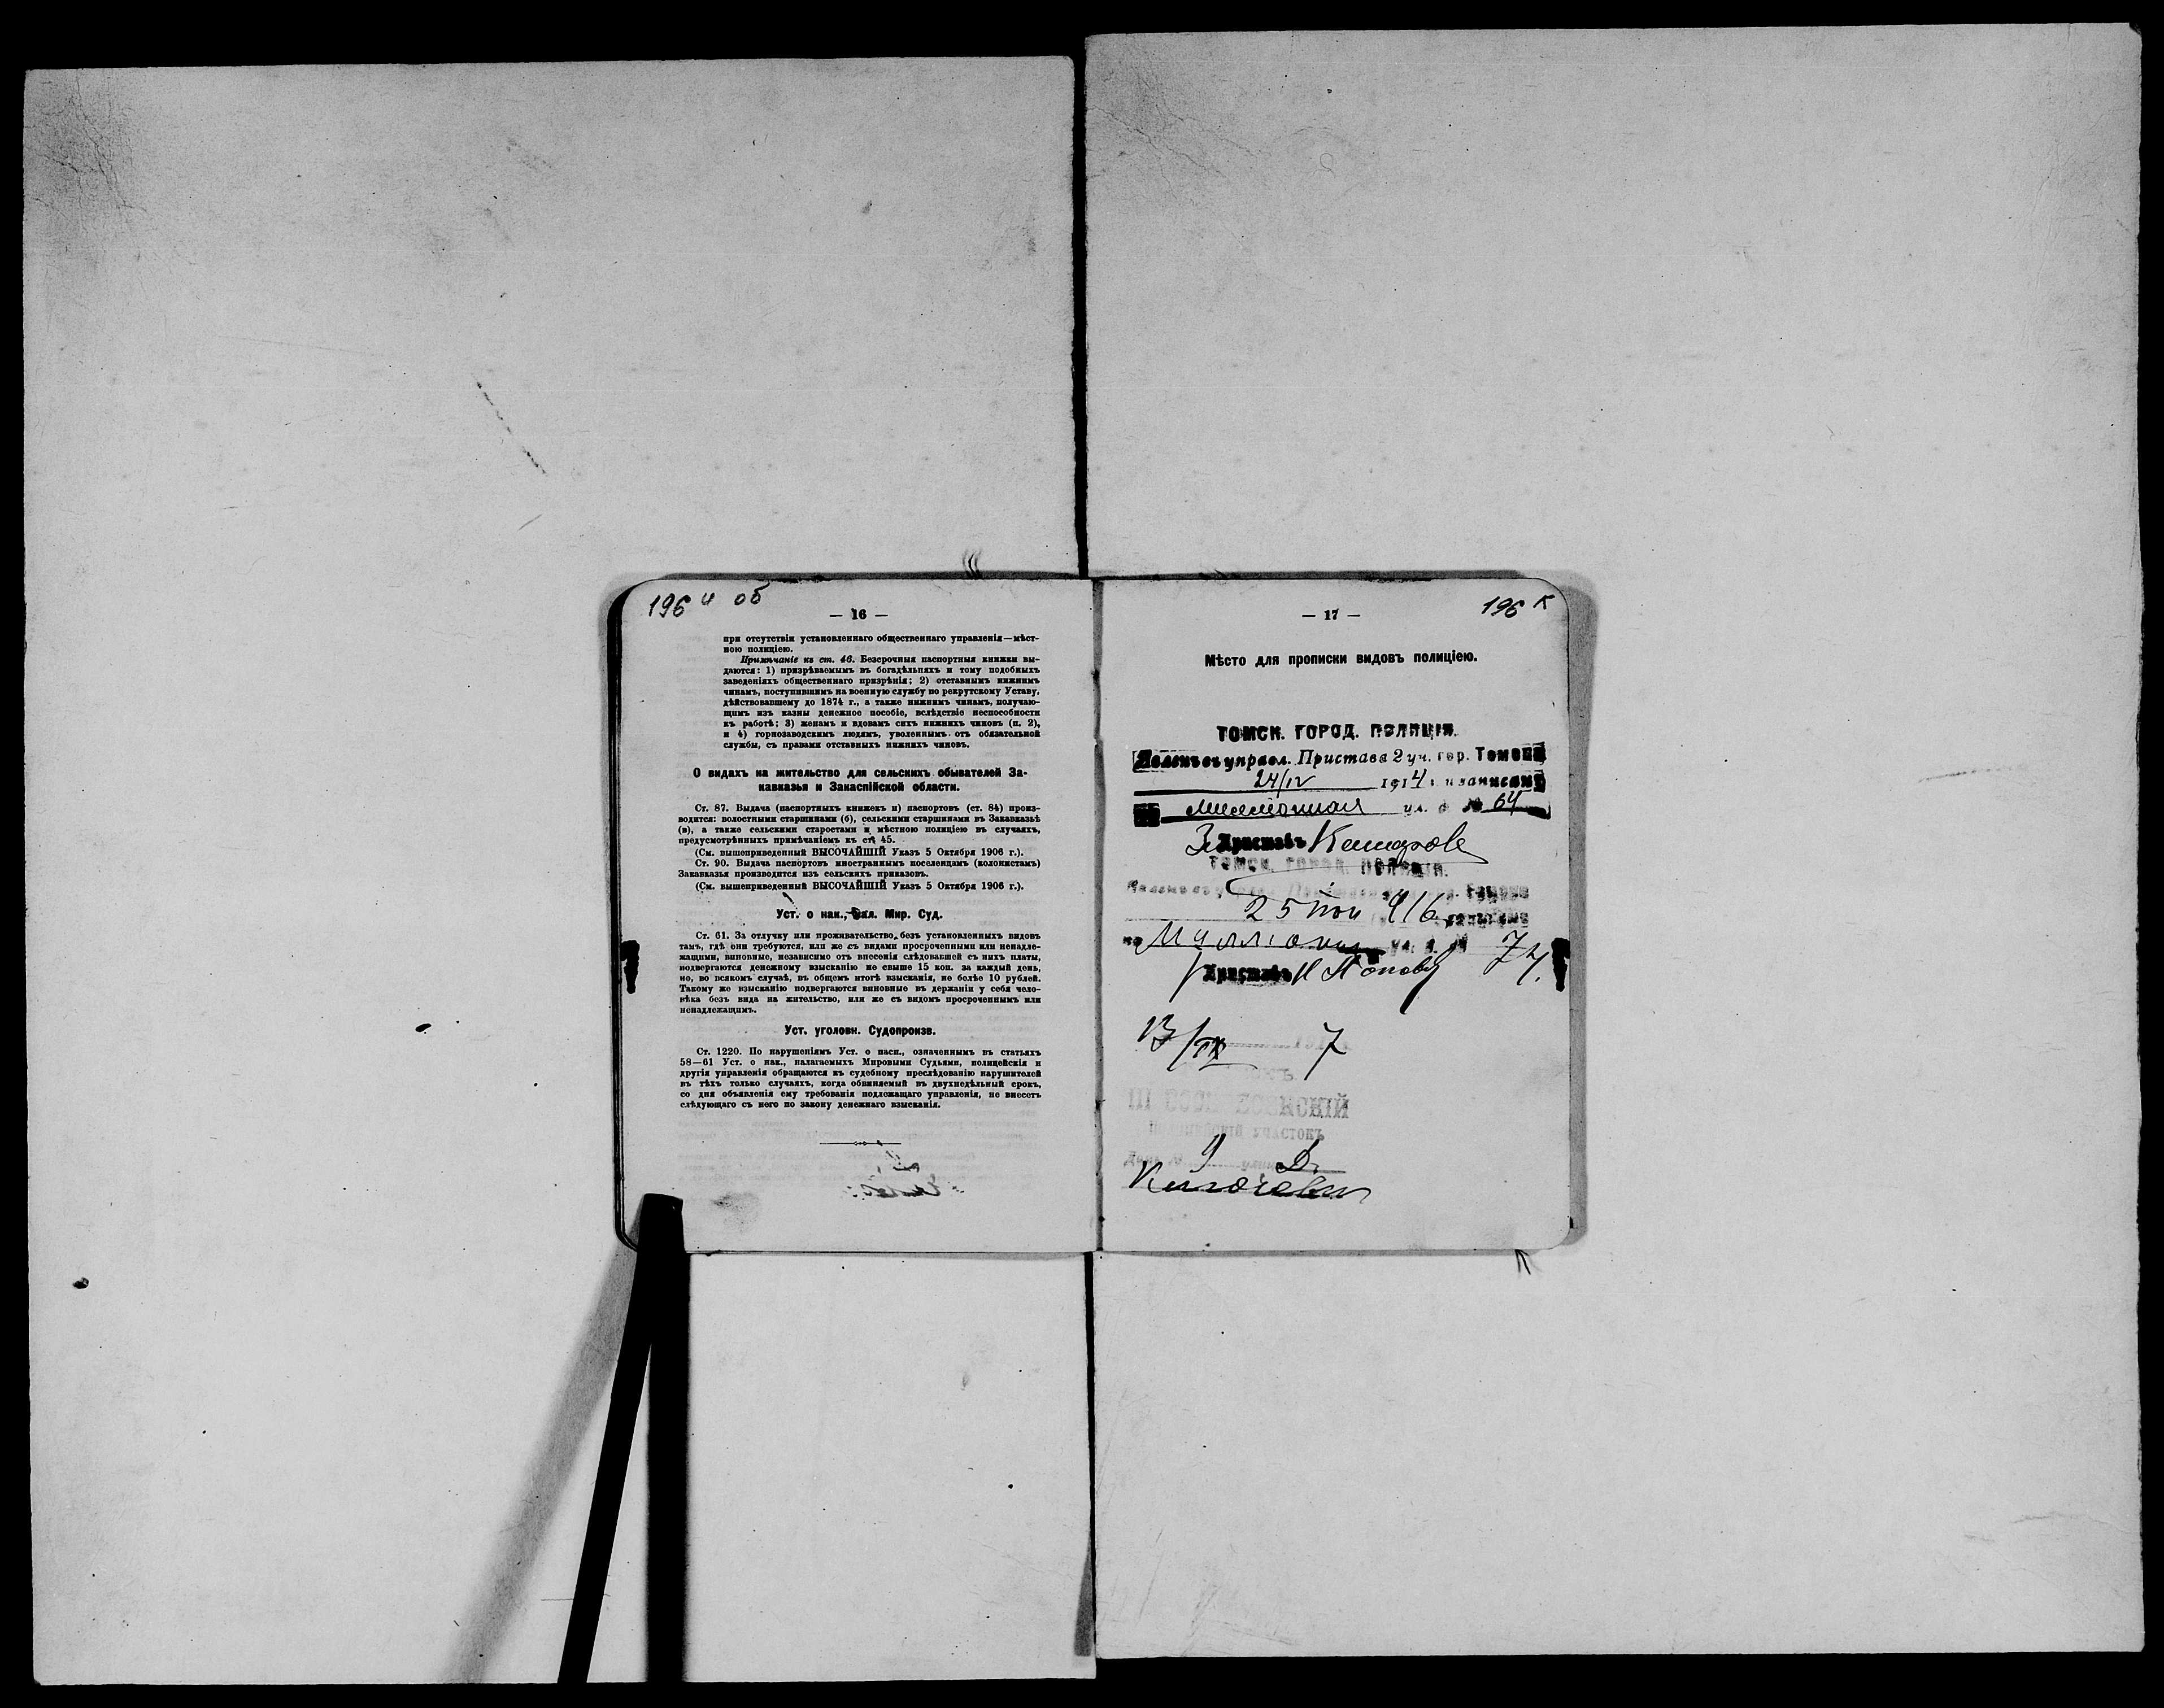 196 и об
— 16 —
при отсутствіи установленнаго общественнаго управленія—мѣст-
ною полиціею.
Примѣчаніе къ ст. 46. Безсрочныя паспортныя книжки вы-
даются: 1) призрѣваемымъ въ богадѣльняхъ и тому подобныхъ
заведеніяхъ общественнаго призрѣнія; 2) отставнымъ нижнимъ
чинамъ, поступившимъ на военную службу по рекрутскому Уставу,
дѣйствовавшему до 1874 г., а также нижнимъ чинамъ, получаю-
щимъ изъ казны денежное пособіе, вслѣдствіе неспособности
къ работѣ; 3) женамъ и вдовамъ сихъ нижнихъ чиновъ (п. 2),
и 4) горнозаводскимъ людямъ, уволеннымъ отъ обязательной
службы, съ правами отставныхъ нижнихъ чиновъ.
О видахъ на жительство для сельскихъ обывателей За-
кавказья и Закаспійской области.
Ст. 87. Выдача (паспортныхъ книжекъ и) паспортовъ (ст. 84) произ-
водится: волостными старшинами (б), сельскими старшинами въ Закавказьѣ
(в), а также сельскими старостами и мѣстною полиціею въ случаяхъ,
предусмотрѣнныхъ примѣчаніемъ къ ст. 45.
(См. вышеприведенный ВЫСОЧАЙШІЙ Указъ 5 Октября 1906 г.).
Ст. 90. Выдача паспортовъ иностраннымъ поселенцамъ (колонистамъ)
Закавказья производится изъ сельскихъ приказовъ.
(См. вышеприведенный ВЫСОЧАЙШІЙ Указъ 5 Октября 1906 г.).
Уст. о нак., нал. Мир. Суд.
Ст. 61. За отлучку или проживательство безъ установленныхъ видовъ
тамъ, гдѣ они требуются, или же съ видами просроченными или ненадле-
жащими, виновные, независимо отъ внесенія слѣдовавшей съ нихъ платы,
подвергаются денежному взысканію не свыше 15 коп. за каждый день,
но, во всякомъ случаѣ, въ общемъ итогѣ взысканія, не болѣе 10 рублей.
Такому же взысканію подвергаются виновные въ держаніи у себя чело-
вѣка безъ вида на жительство, или же съ видомъ просроченнымъ или
ненадлежащимъ.
Уст. уголовн. Судопроизв.
Ст. 1220. По нарушеніямъ Уст. о пасп., означеннымъ въ статьяхъ
58—61 Уст. о нак., налагаемыхъ Мировыми Судьями, полицейскія и
другія управленія обращаются къ судебному преслѣдованію нарушителей
въ тѣхъ только случаяхъ, когда обвиняемый въ двухнедѣльный срокъ,
со дня объявленія ему требованія подлежащаго управленія, не внесетъ
слѣдующаго съ него по закону денежнаго взысканія.
196 к
— 17 —
Мѣсто для прописки видовъ полиціею.
ТОМСК. ГОРОД. ПОЛИЦІЯ.
Явленъ въ управл. Пристава 2 уч. гор. Томска
24/IV 1914 г. и записанъ
Милліонная ул. д. № 64
За Приставъ
ТОМСК. ГОРОД. ПОЛИЦІЯ.
Явленъ въ управл. Пристава Томска
25 ноя 916 записанъ
по Милліонн ул. д. № 74
Приставъ Н Поповъ
13/IX 7
III УЧАСТОКЪ
9 Д.